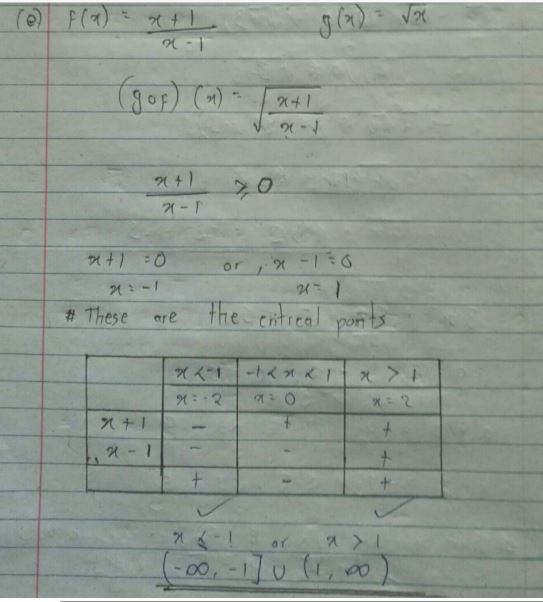 (Q) f(x) = x+1 / x-1 g(x) = √x
(gof) (x) = √(x+1 / x-1)
x+1 / x-1 ⩾ 0
x+1 = 0 or, x-1 = 0
x = -1 x = 1
# These are the critical points
x < -1 -1 < x < 1 x > 1
x = -2 x = 0 x = 2
x+1 - + +
x-1 - - +
+ - +
✓ ✓
x ⩽ -1 or x > 1
(-∞, -1] ∪ (1, ∞)